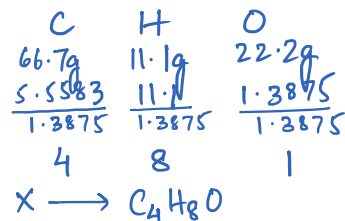 C H O
66.7g 11.1g 22.2g
5.5583 11.1 1.3875
1.3875 1.3875 1.3875
4 8 1
X → C₄H₈O